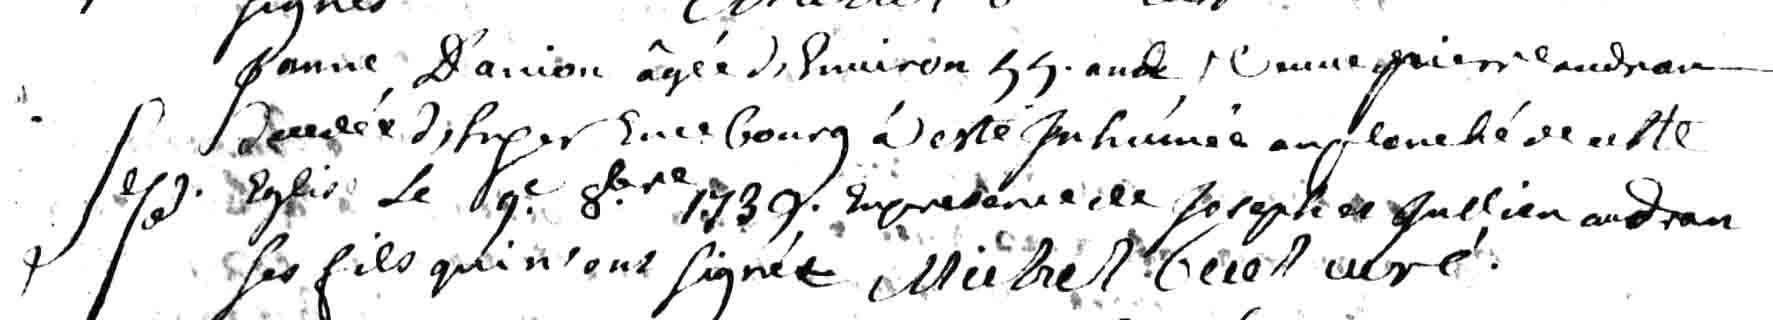 signés
Janne Danion âgéé d'Environ 55. ans femme pierre audran
decedéé d'hyer En ce bourg à esté Inhuméé au planché de cette
Eglise Le 9.e 8.bre 1739. En presence de Joseph et Jullien audran
ses fils qui n'ont signés Michel curé.